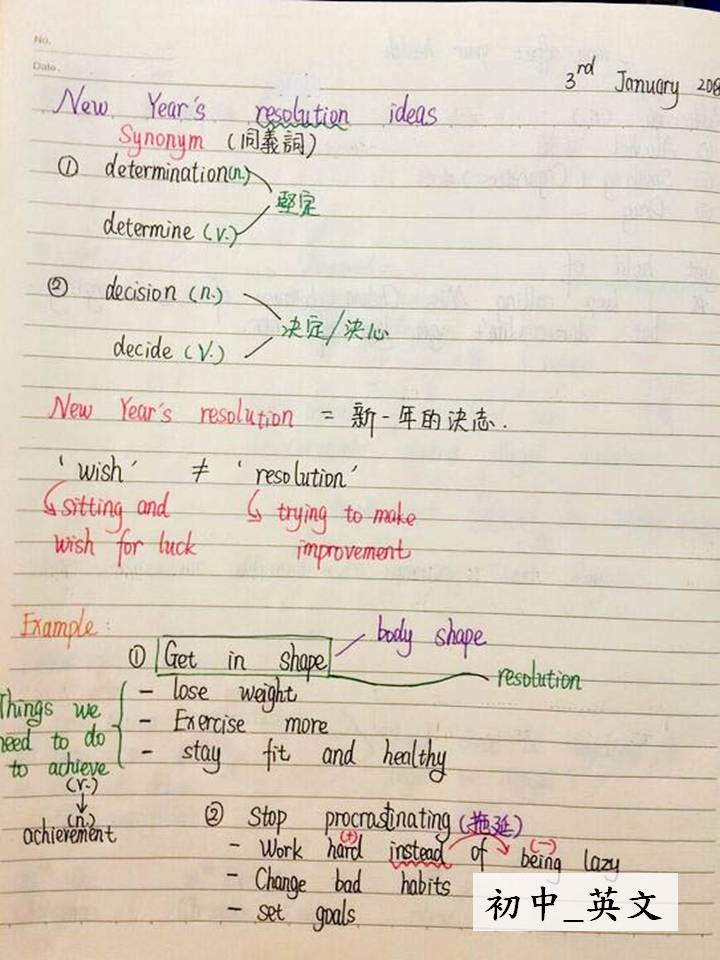 No.
Date.
3rd January 208
New Year's resolution ideas
Synonym (同義詞)
① determination(n.)
堅定
determine (v.)
② decision (n.)
決定/決心
decide (v.)
New Year's resolution = 新一年的決志.
'wish' ≠ 'resolution'
sitting and
wish for luck
trying to make
improvement
Example:
body shape
① Get in shape
resolution
Things we
need to do
to achieve
(v.)
(n.)
achievement
- lose weight
- Exercise more
- stay fit and healthy
② Stop procrastinating (拖延)
(+) (-)
- Work hard instead of being lazy
- Change bad habits
- set goals
初中_英文